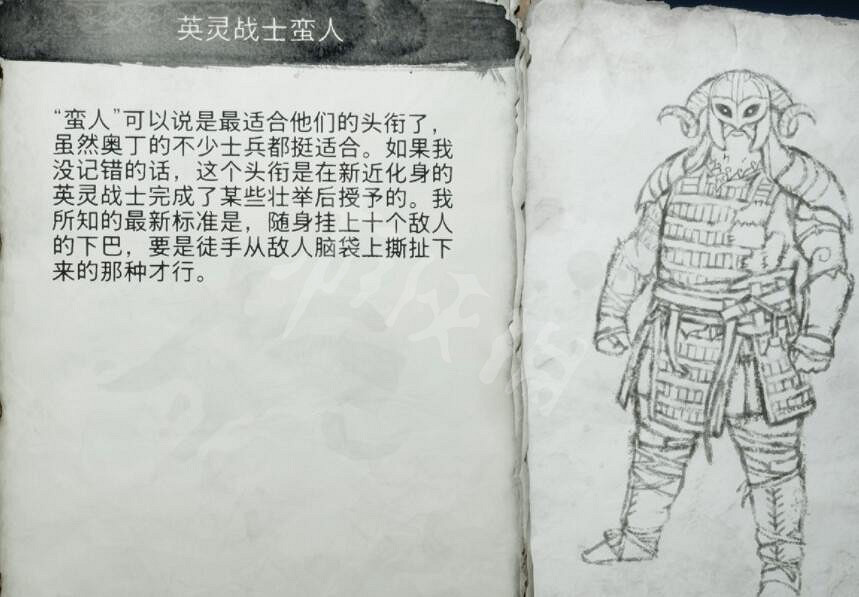 英灵战士蛮人
“蛮人”可以说是最适合他们的头衔了，
虽然奥丁的不少士兵都挺适合。如果我
没记错的话，这个头衔是在新近化身的
英灵战士完成了某些壮举后授予的。我
所知的最新标准是，随身挂上十个敌人
的下巴，要是徒手从敌人脑袋上撕扯下
来的那种才行。